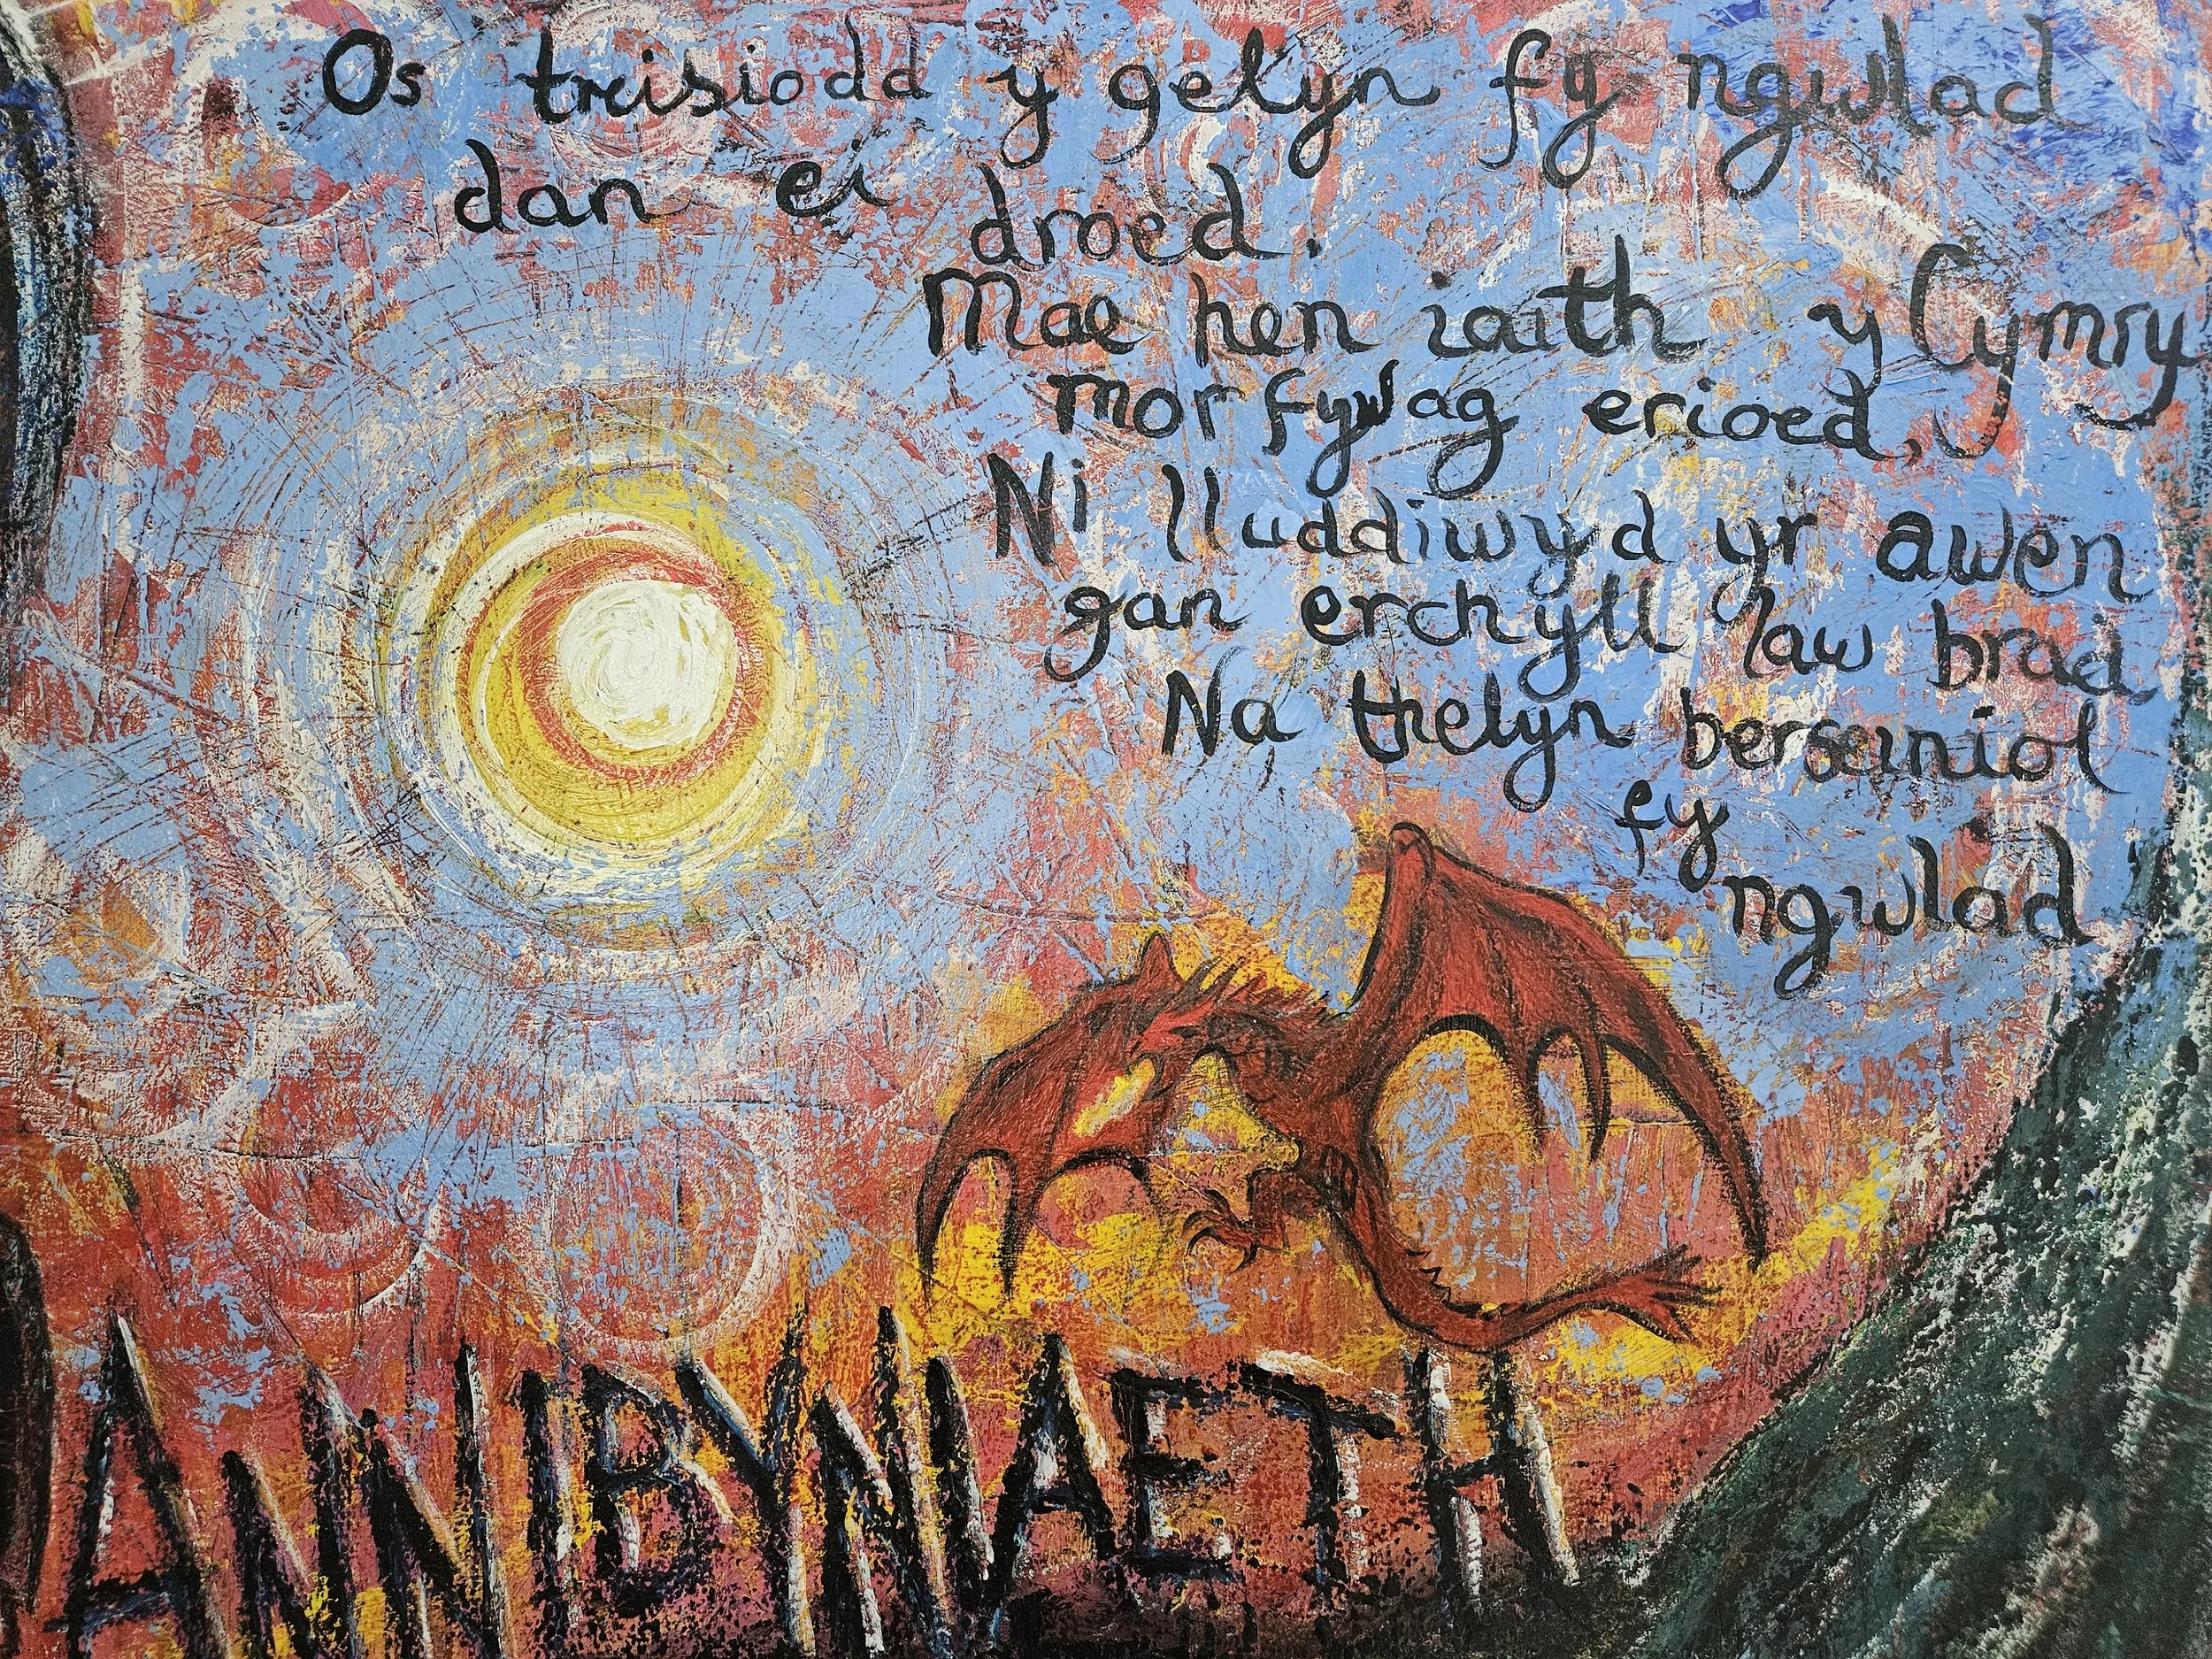 Os treisiodd y gelyn fy ngwlad
dan ei droed.
Mae hen iaith y Cymry
mor fywag erioed,
Ni lluddiwyd yr awen
gan erchyll law brad
Na thelyn berseiniol
fy
ngwlad
ANNIBYNIAETH